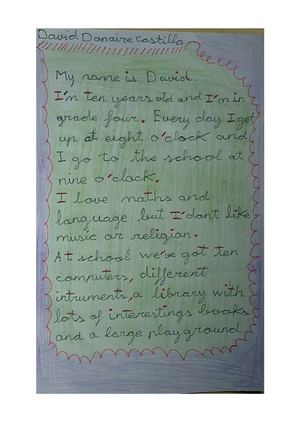 David Donaire Castillo
My name is David.
I'm ten years old and I'm in
grade four. Every day I get
up at eight o'clock and
I go to the school at
nine o'clock.
I love maths and
language but I'dont like
music or religion.
At school we've got ten
computers, different
intruments, a library with
lots of interestings books
and a large playground